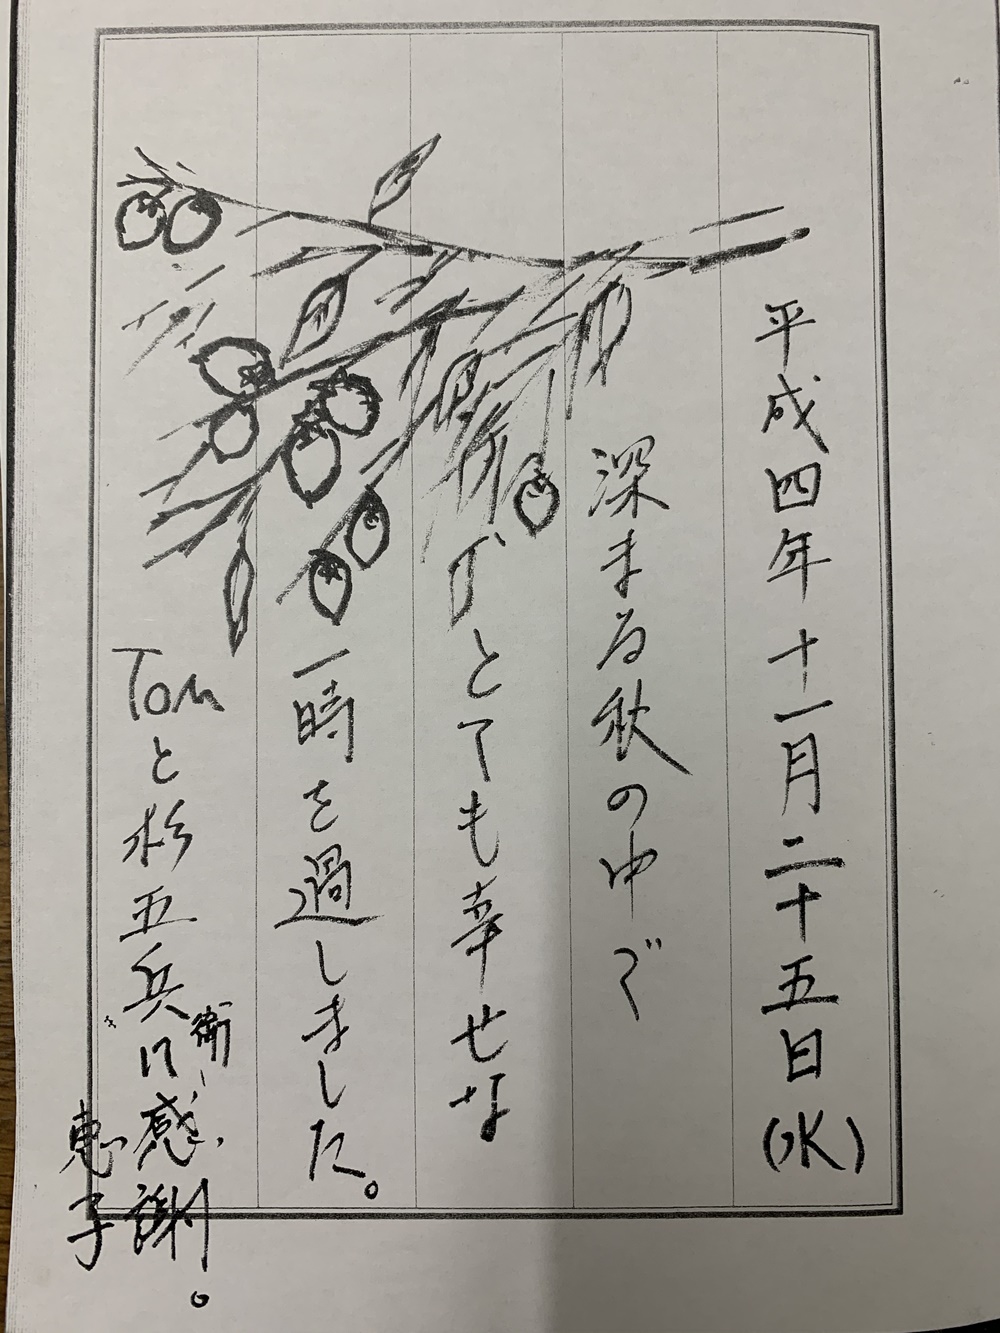 平成四年十一月二十五日(水)
深まる秋の中で
とても幸せな
一時を過しました。
Tomと杉五兵衛に感謝。
恵子